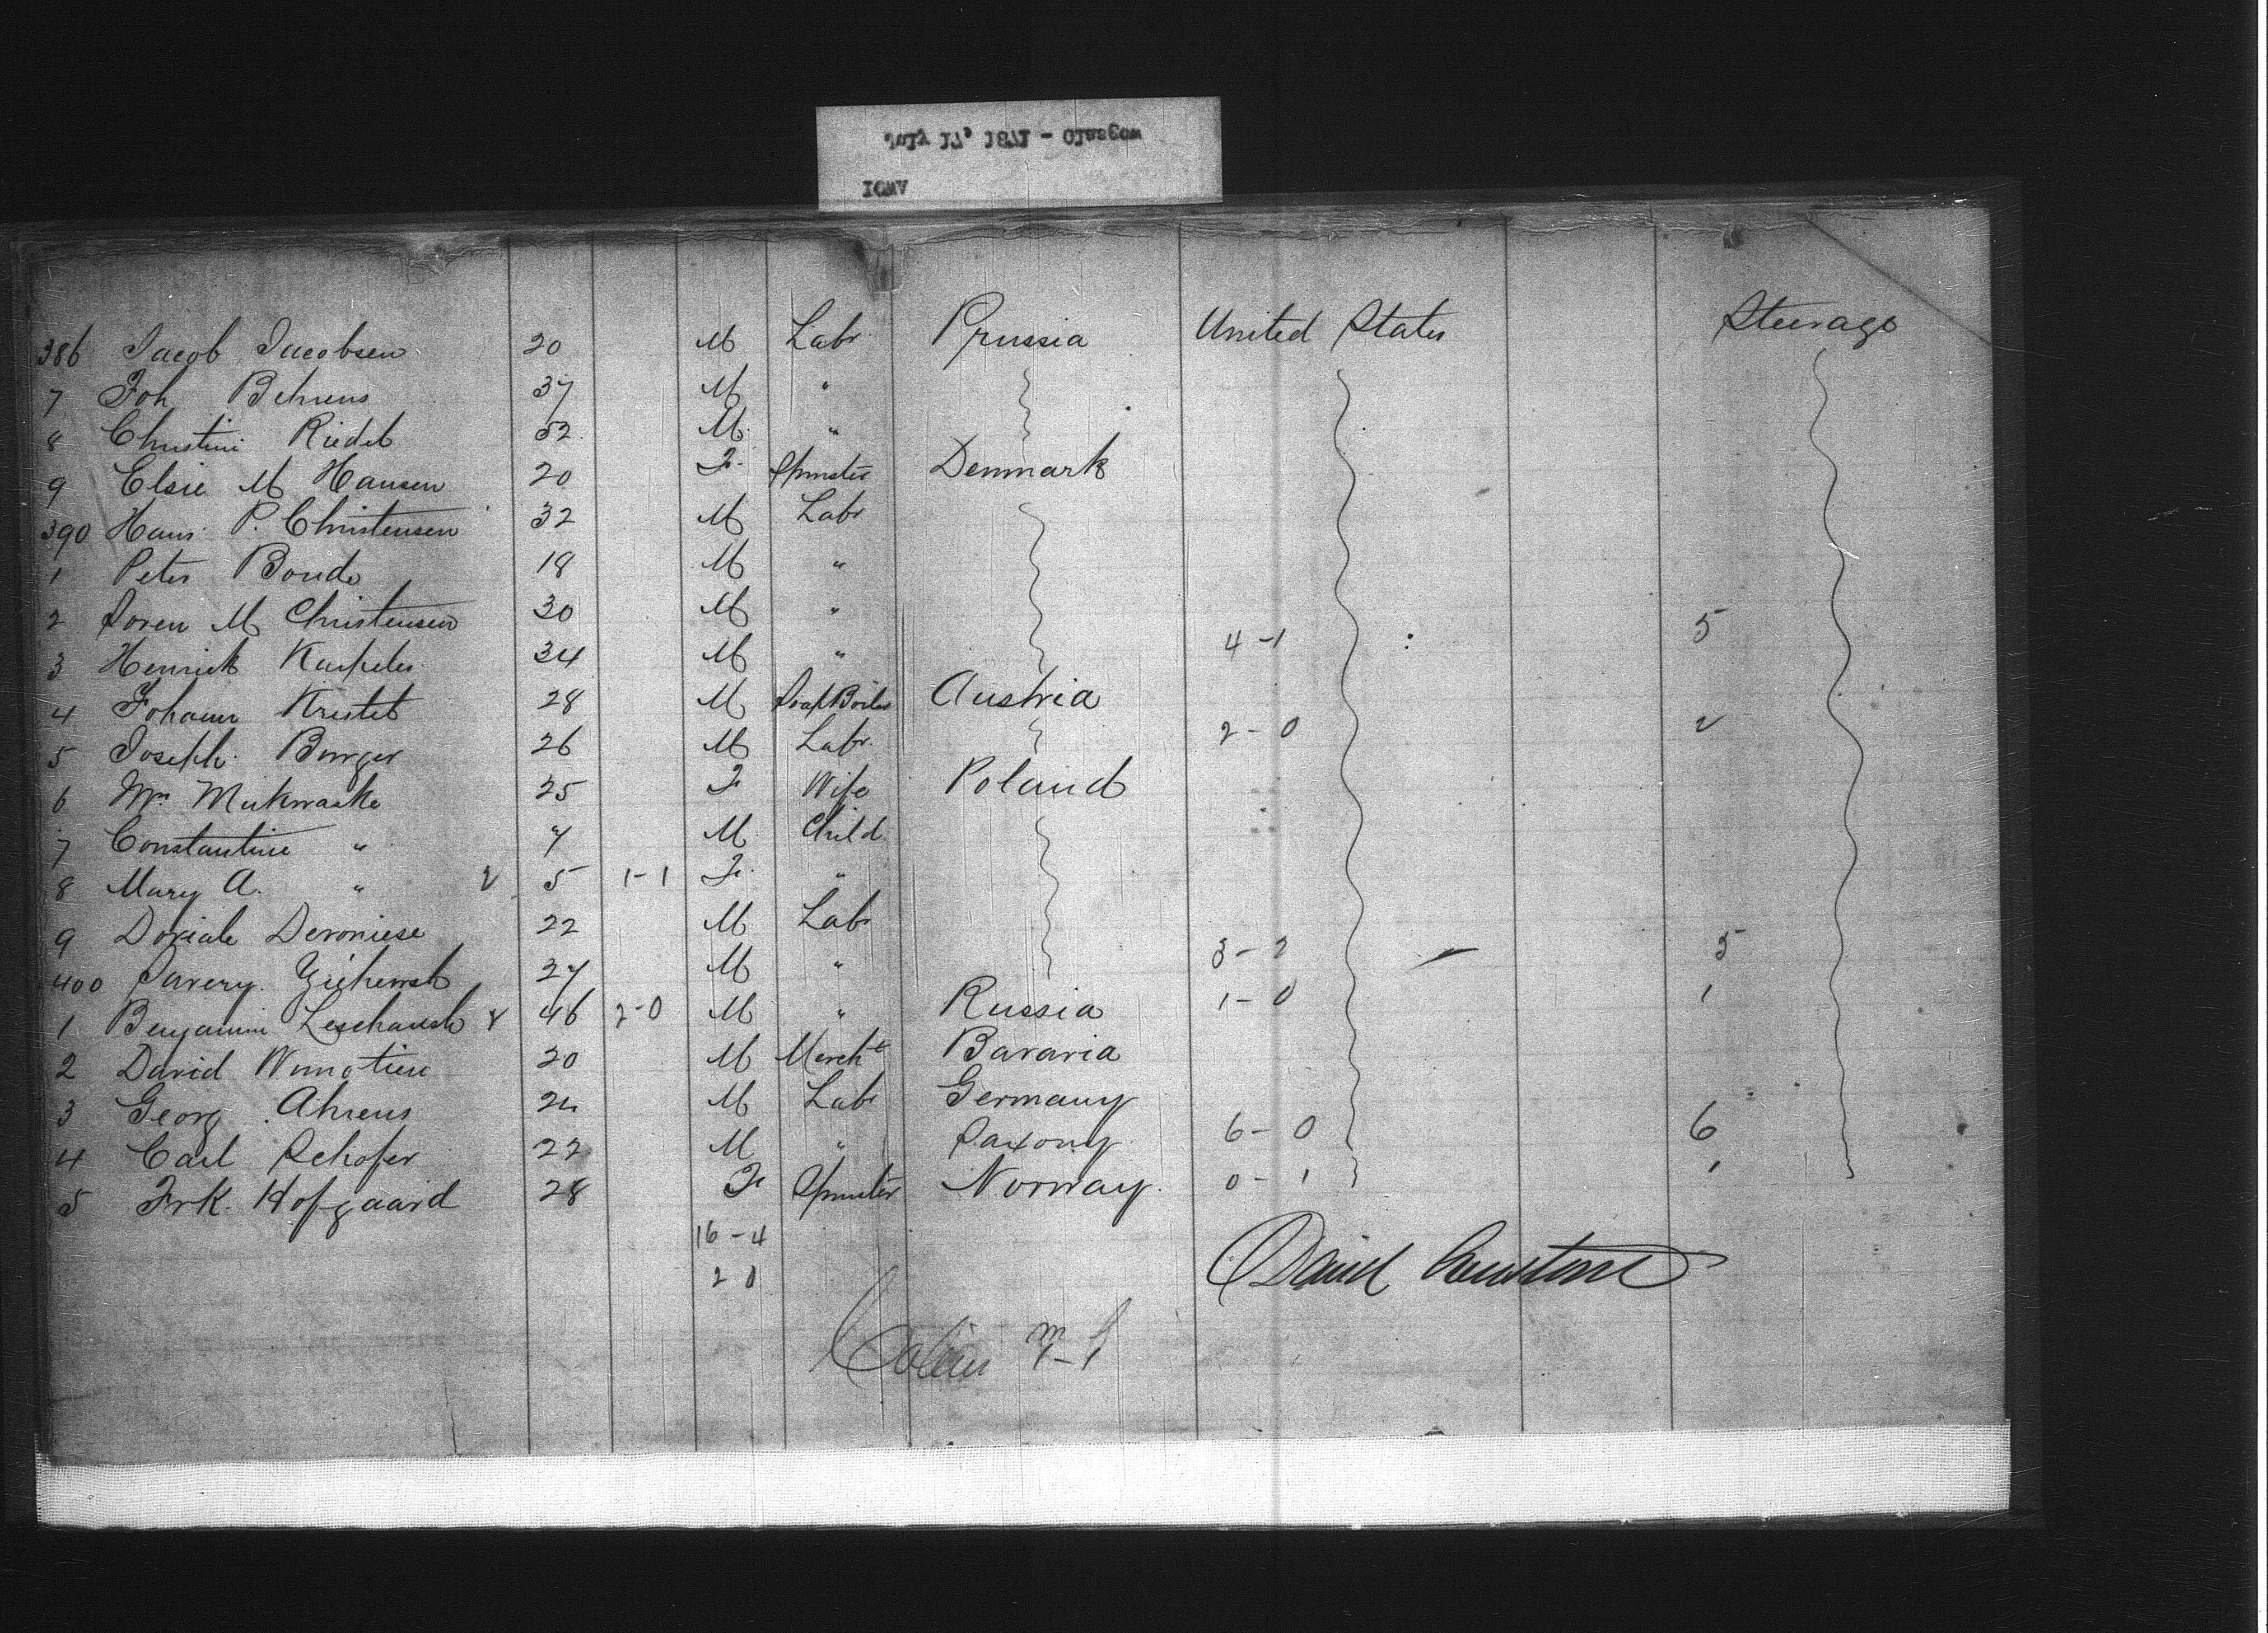 IOWA
386 Jacob Jacobsen 20 M Labr Prussia United States Steerage
7 Joh Behrens 37 M "
8 Christine Riedel 52 M "
9 Elsie M Hansen 20 F Spinster Denmark
390 Hans P. Christensen 32 M Labr
1 Peter Bonde 18 M "
2 Soren M Christensen 30 M "
3 Henrick Karpeles 34 M " 4-1 5
4 Johann Kristel 28 M Soap Boiler Austria
5 Joseph Burger 26 M Labr. 2-0 2
6 Mrs 25 F Wife Poland
7 Constantine " 7 M Child
8 Mary A. " 5 1-1 F "
9 22 M Labr
400 27 M " 3-2 5
1 Benjamin 46 2-0 M " Russia 1-0 1
2 David 20 M Mercht Bavaria
3 Georg Ahrens 24 M Labr Germany
4 Carl Schofer 22 M " Saxony 6-0 6
5 Frk. Hofgaard 28 F Spinster Norway 0-1 1
16-4
20
David